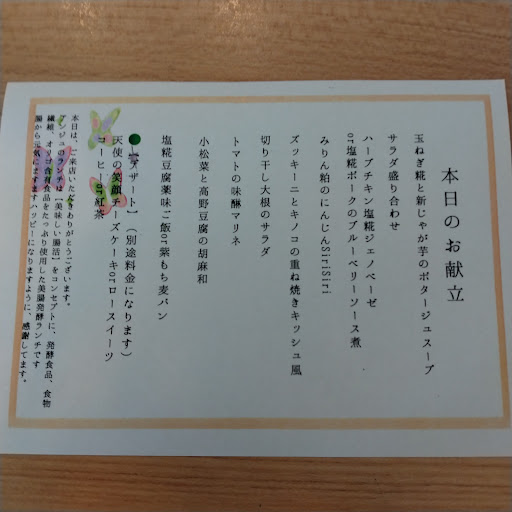 本日のお献立
玉ねぎ糀と新じゃが芋のポタージュスープ
サラダ盛り合わせ
ハーブチキン塩糀ジェノベーゼ
or塩糀ポークのブルーベリーソース煮
みりん粕のにんじんSiriSiri
ズッキーニとキノコの重ね焼きキッシュ風
切り干し大根のサラダ
トマトの味醂マリネ
小松菜と高野豆腐の胡麻和
塩糀豆腐薬味ご飯or紫もち麦パン
デザート】(別途料金になります)
天使の笑顔チーズケーキorロースイーツ
コーヒーor紅茶
本日は、ご来店いただきありがとうございます。
アンジュのランチは【美味しい腸活】をコンセプトに、発酵食品、食物
繊維、オリゴ含有食品をたっぷり使用した美腸発酵ランチです
腸から元気にますますハッピーになりますように、感謝してます。